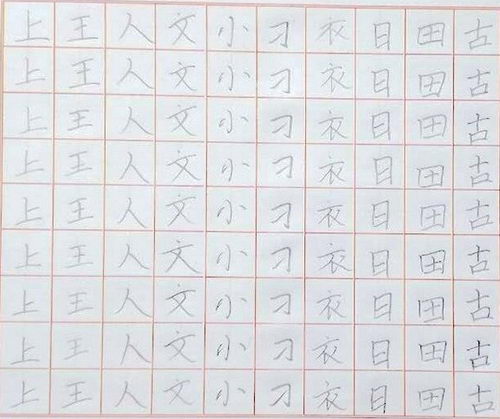 上王人文小刁衣日田古
上王人文小刁衣日田古
上王人文小刁衣日田古
上王人文小刁衣日田古
上王人文小刁衣日田古
上王人文小刁衣日田古
上王人文小刁衣日田古
上王人文小刁衣日田古
上王人文小刁衣日田古